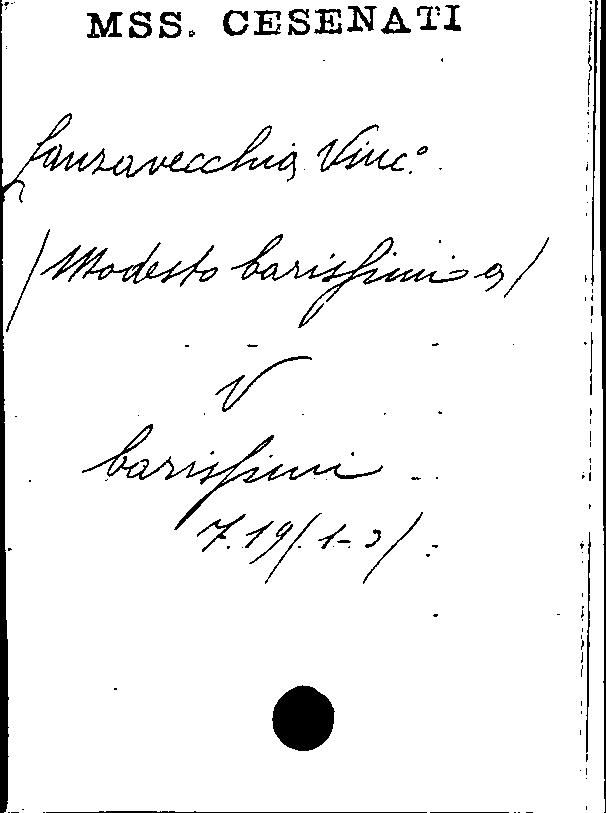 MSS. CESENATI
Lanzavecchia Vinc.º
/Modesto Carissimi a/
V
Carissimi
7.19/.1-2/